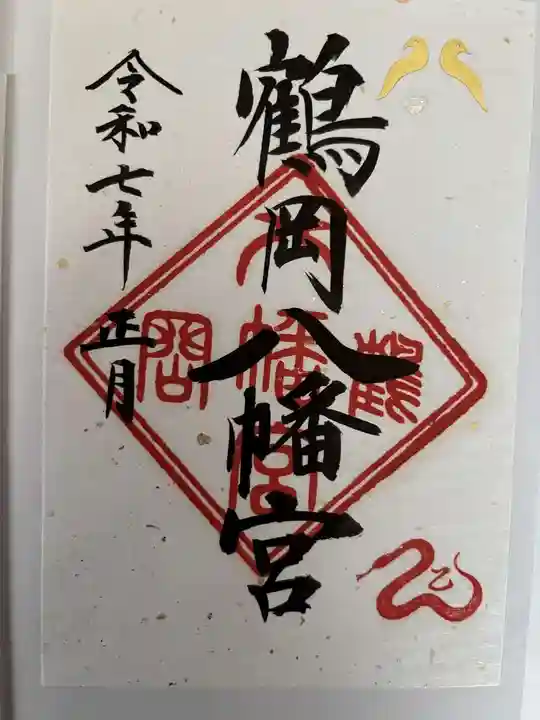 鶴岡八幡宮
令和七年 正月
鶴
八幡宮
岡